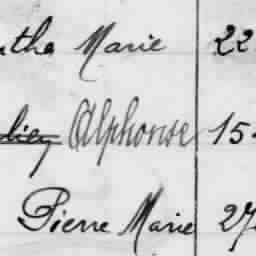 Marie 22
Alphonse 15
Pierre Marie 27